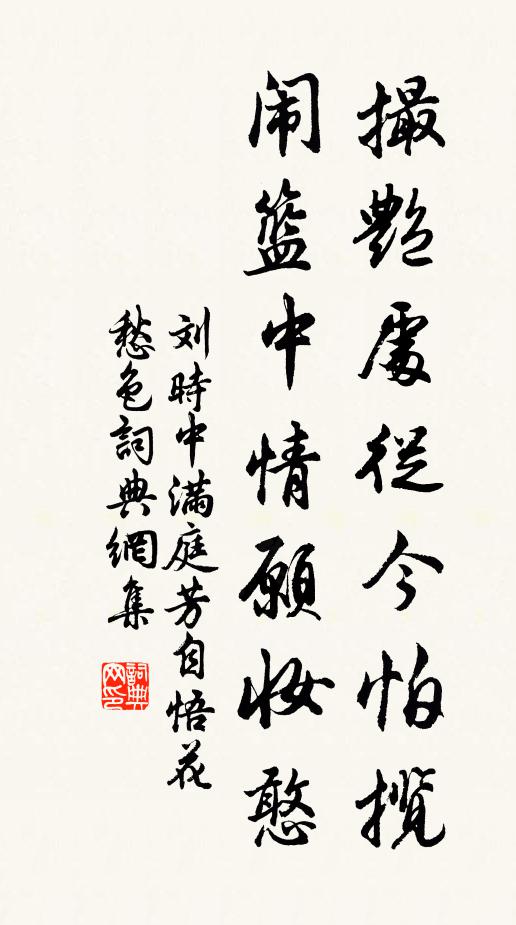 撮艷處從今怕攬
闹籃中情願妝憨
刘時中满庭芳自悟花
愁色詞典網集
詞典
网印